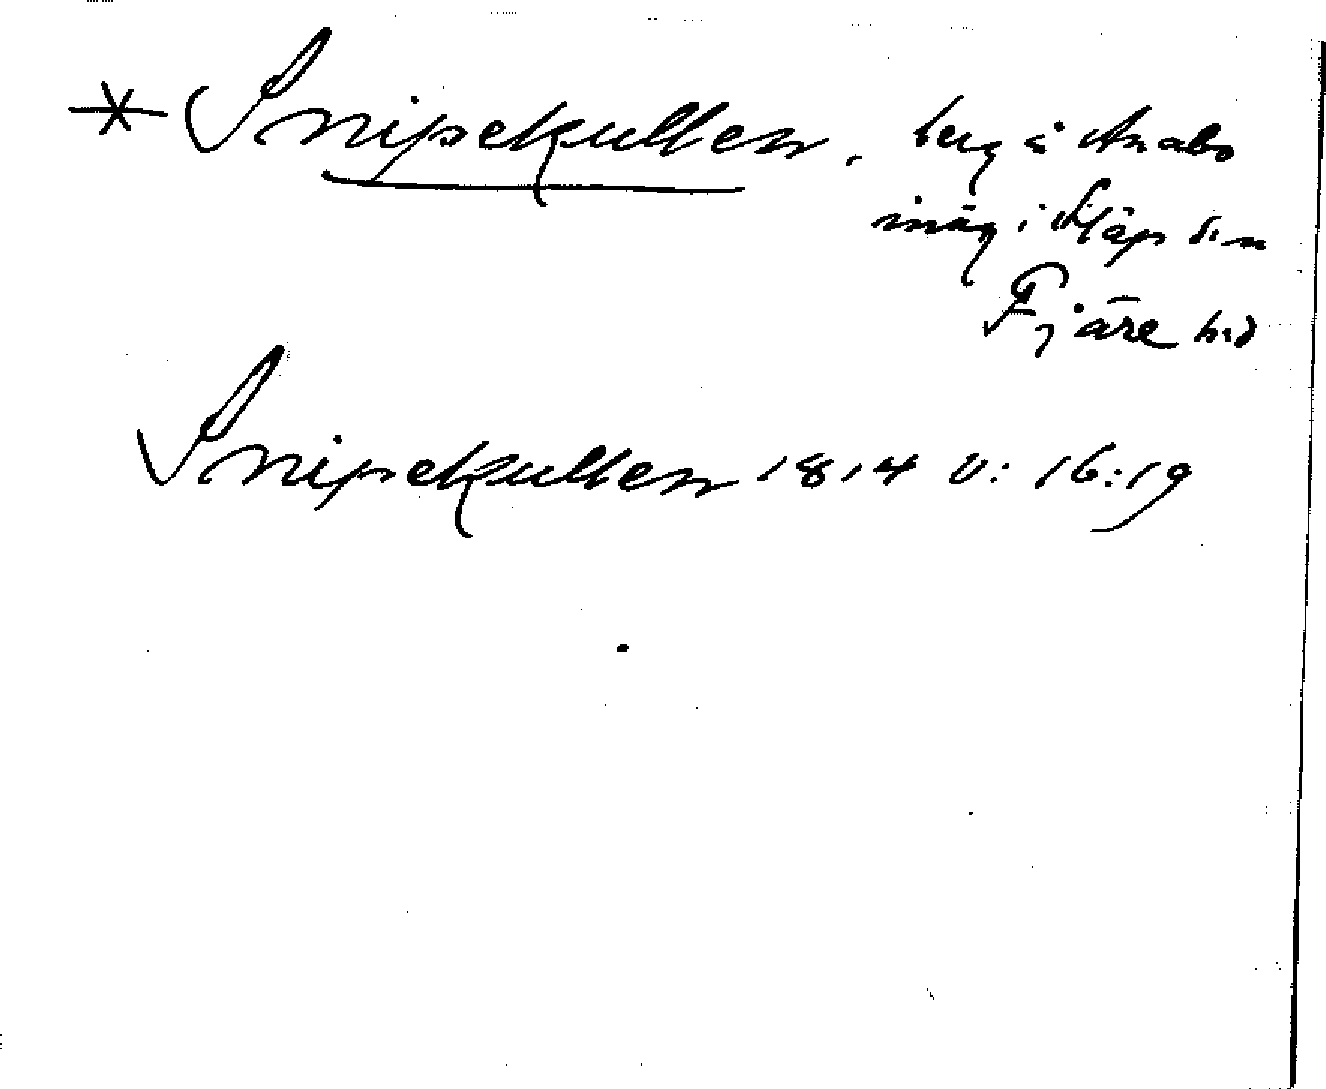 * Snipekullen, berg å Anabo
inäg i Släp sn
Fjäre hd
Snipekullen 1814 U: 16:19